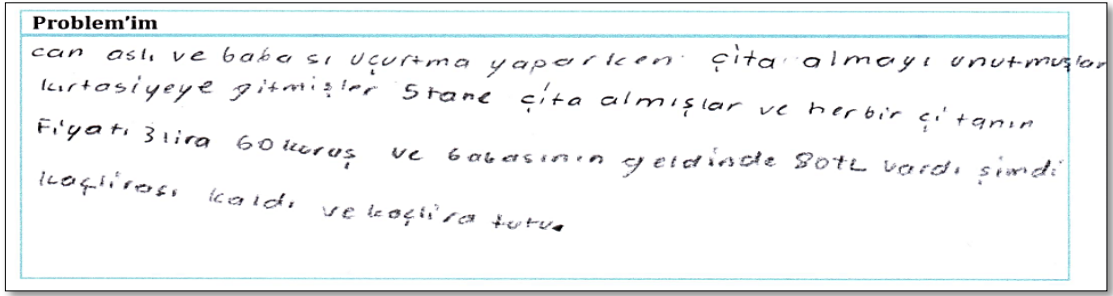 Problem'im
can aslı ve babası uçurtma yaparken çita almayı unutmuşlar
kırtasiyeye gitmişler 5 tane çita almışlar ve herbir çitanın
Fiyatı 3 lira 60 kuruş ve babasının geldinde 80TL vardı şimdi
kaçlirası kaldı ve kaçlira tutu